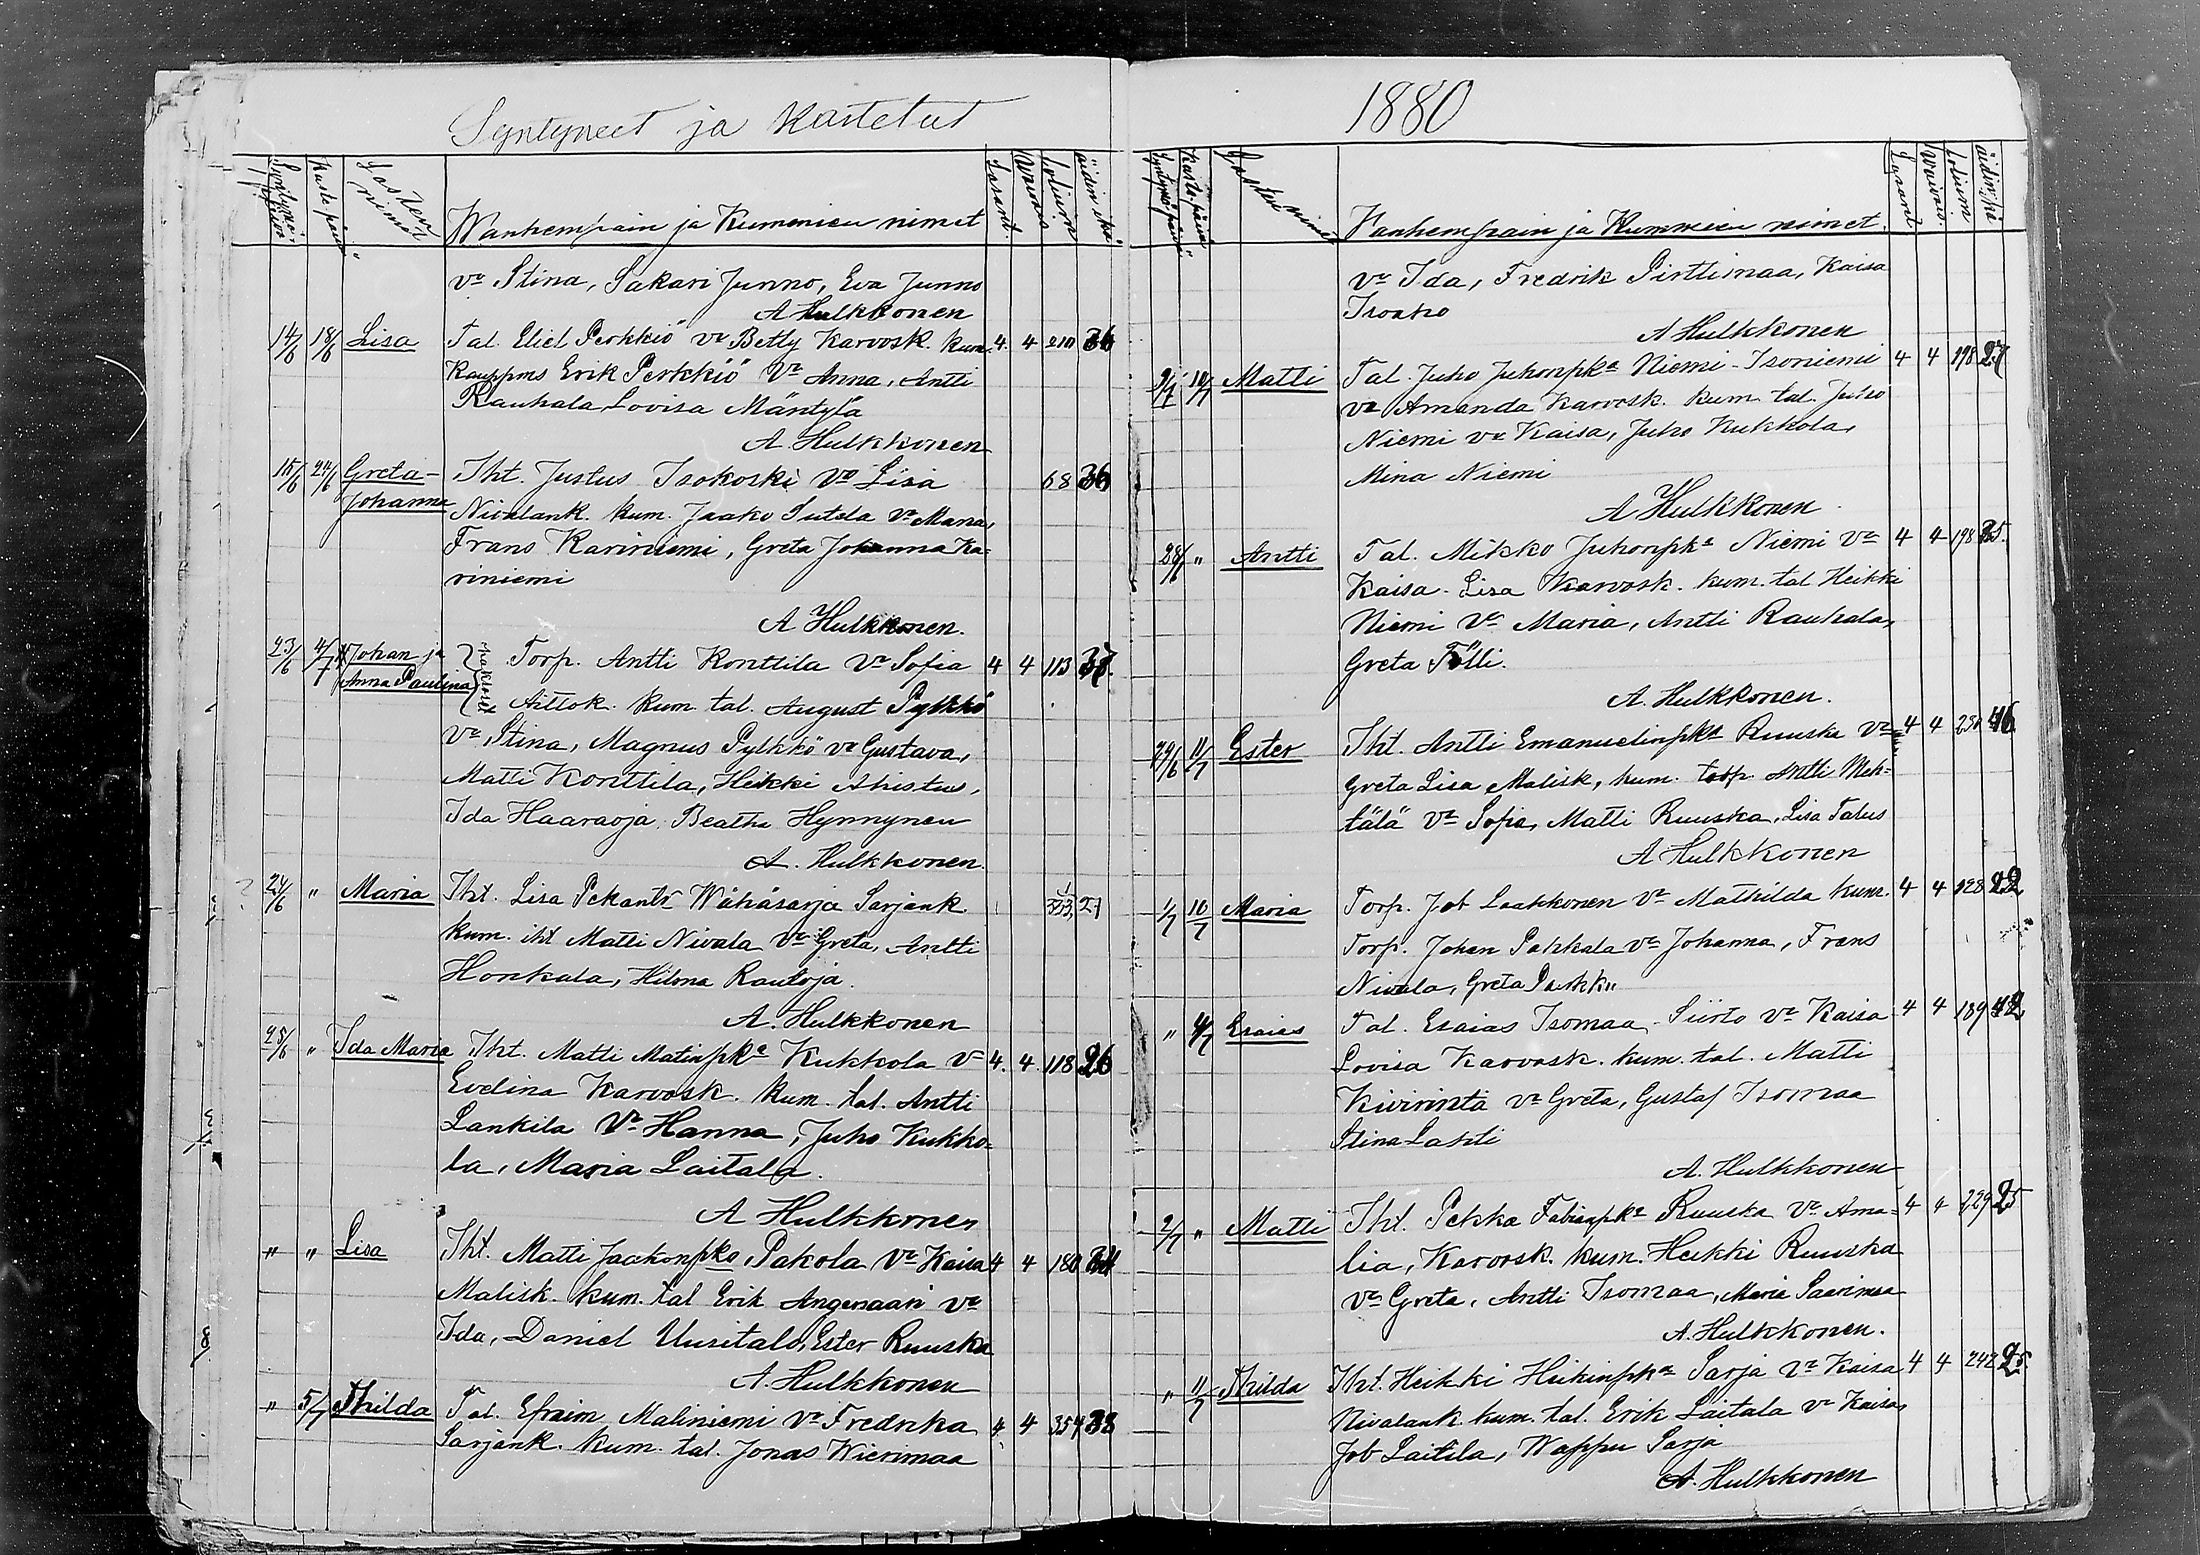 Syntyneet ja Kastetut
Syntymä päivä Kaste päivä Lasten nimet Wanhempain ja Kummien nimet folium äidin ikä
va Stina, Sakari Junno, Eva Junno
A Hulkkonen
14/6 18/6 Lisa Tal. Eliel Perkkiö va Betty Karvosk. kum. 4. 4 210 36
Kauppms Erik Perkkiö Va Anna, Antti
Rauhala, Lovisa Mäntylä
A Hulkkonen
15/6 24/6 Greta- Iht. Justus Isokoski Va Lisa 68 36
Johanna Nivalank. kum. Jaako Sutela va Maria,
Frans Kariniemi, Greta Johanna Ka=
riniemi
A Hulkkonen.
23/6 4/7 Johan ja Torp. Antti Konttila Va Sofia 4 4 113 37.
Anna Paulina kaksoset Aittok. kum. tal. August Pylkkö
Va Stina, Magnus Pylkkö va Gustava,
Matti Konttila, Heikki Ahistus,
Ida Haaraoja, Beatha Hynnynen
A. Hulkkonen.
24/6 " Maria Iht. Lisa Pekantr Wähäsarja Sarjank. 333 21
kum. iht Matti Nivala Va Greta, Antti
Honkala, Hilma Rautoja.
A. Hulkkonen
25/6 " Ida Maria Iht. Matti Matinpka Kukkola Va 4. 4. 118 26
Evelina Karvosk. kum. tal. Antti
Lankila Va Hanna, Juho Kukko=
la, Maria Laitala.
A Hulkkonen
" " Lisa Iht. Matti Jaakonpka, Pakola Va Kaisa 4 4 180 34
Malisk. kum. tal Erik Angenaari va
Ida, Daniel Uusitalo, Ester Ruuska
A. Hulkkonen
" 5/7 Thilda Tal. Efraim Maliniemi Va Fredrika 4. 4 354 33
Sarjank. kum. tal. Jonas Wierimaa
1880
Syntymä päivä Kaste päivä Lasten nimet Vanhempain ja Kummien nimet folium äidin ikä
va Ida, Fredrik Pirttimaa, Kaisa
Isoaho
A Hulkkonen
9/7 10/7 Matti Tal. Juho Juhonpka Niemi-Isoniemi 4 4 198 27
va Amanda Karvosk. kum. tal. Juho
Niemi va Kaisa, Juho Kukkola,
Mina Niemi
A Hulkkonen.
28/6 " Antti Tal. Mikko Juhonpka Niemi Va 4 4 198 25.
Kaisa-Lisa Karvosk. kum. tal Heikki
Niemi Va Maria, Antti Rauhala,
Greta Tölli.
A. Hulkkonen.
29/6 11/7 Ester Iht. Antti Emanuelinpka Ruuska Va 4 4 230 46
Greta Lisa Malisk, kum. torp. Antti Meh=
tälä Va Sofia, Matti Ruuska, Lisa Talus
A Hulkkonen
1/7 10/7 Maria Torp. Job Laakkonen Va Mathilda kum. 4 4 128 22
Torp. Johan Pahkala Va Johanna, Frans
Nivala, Greta Parkku
" 4/7 Esaias Tal. Esaias Isomaa-Siirto Va Kaisa 4 4 189 42
Lovisa Karvosk. kum. tal. Matti
Kivirinta va Greta, Gustaf Isomaa
Stina Lahti
A. Hulkkonen
2/7 " Matti Iht. Pekka Fabianpka Ruuska Va Ama= 4 4 229 25
lia, Karvosk. kum. Heikki Ruuska
Va Greta, Antti Isomaa, Maria Saarimaa
A. Hulkkonen.
" 11/7 Thilda Iht. Heikki Heikinpka Sarja Va Kaisa 4 4 242 25.
Nivalank kum. tal. Erik Laitala va Kaisa,
Job Laitila, Wappu Sarja
A. Hulkkonen